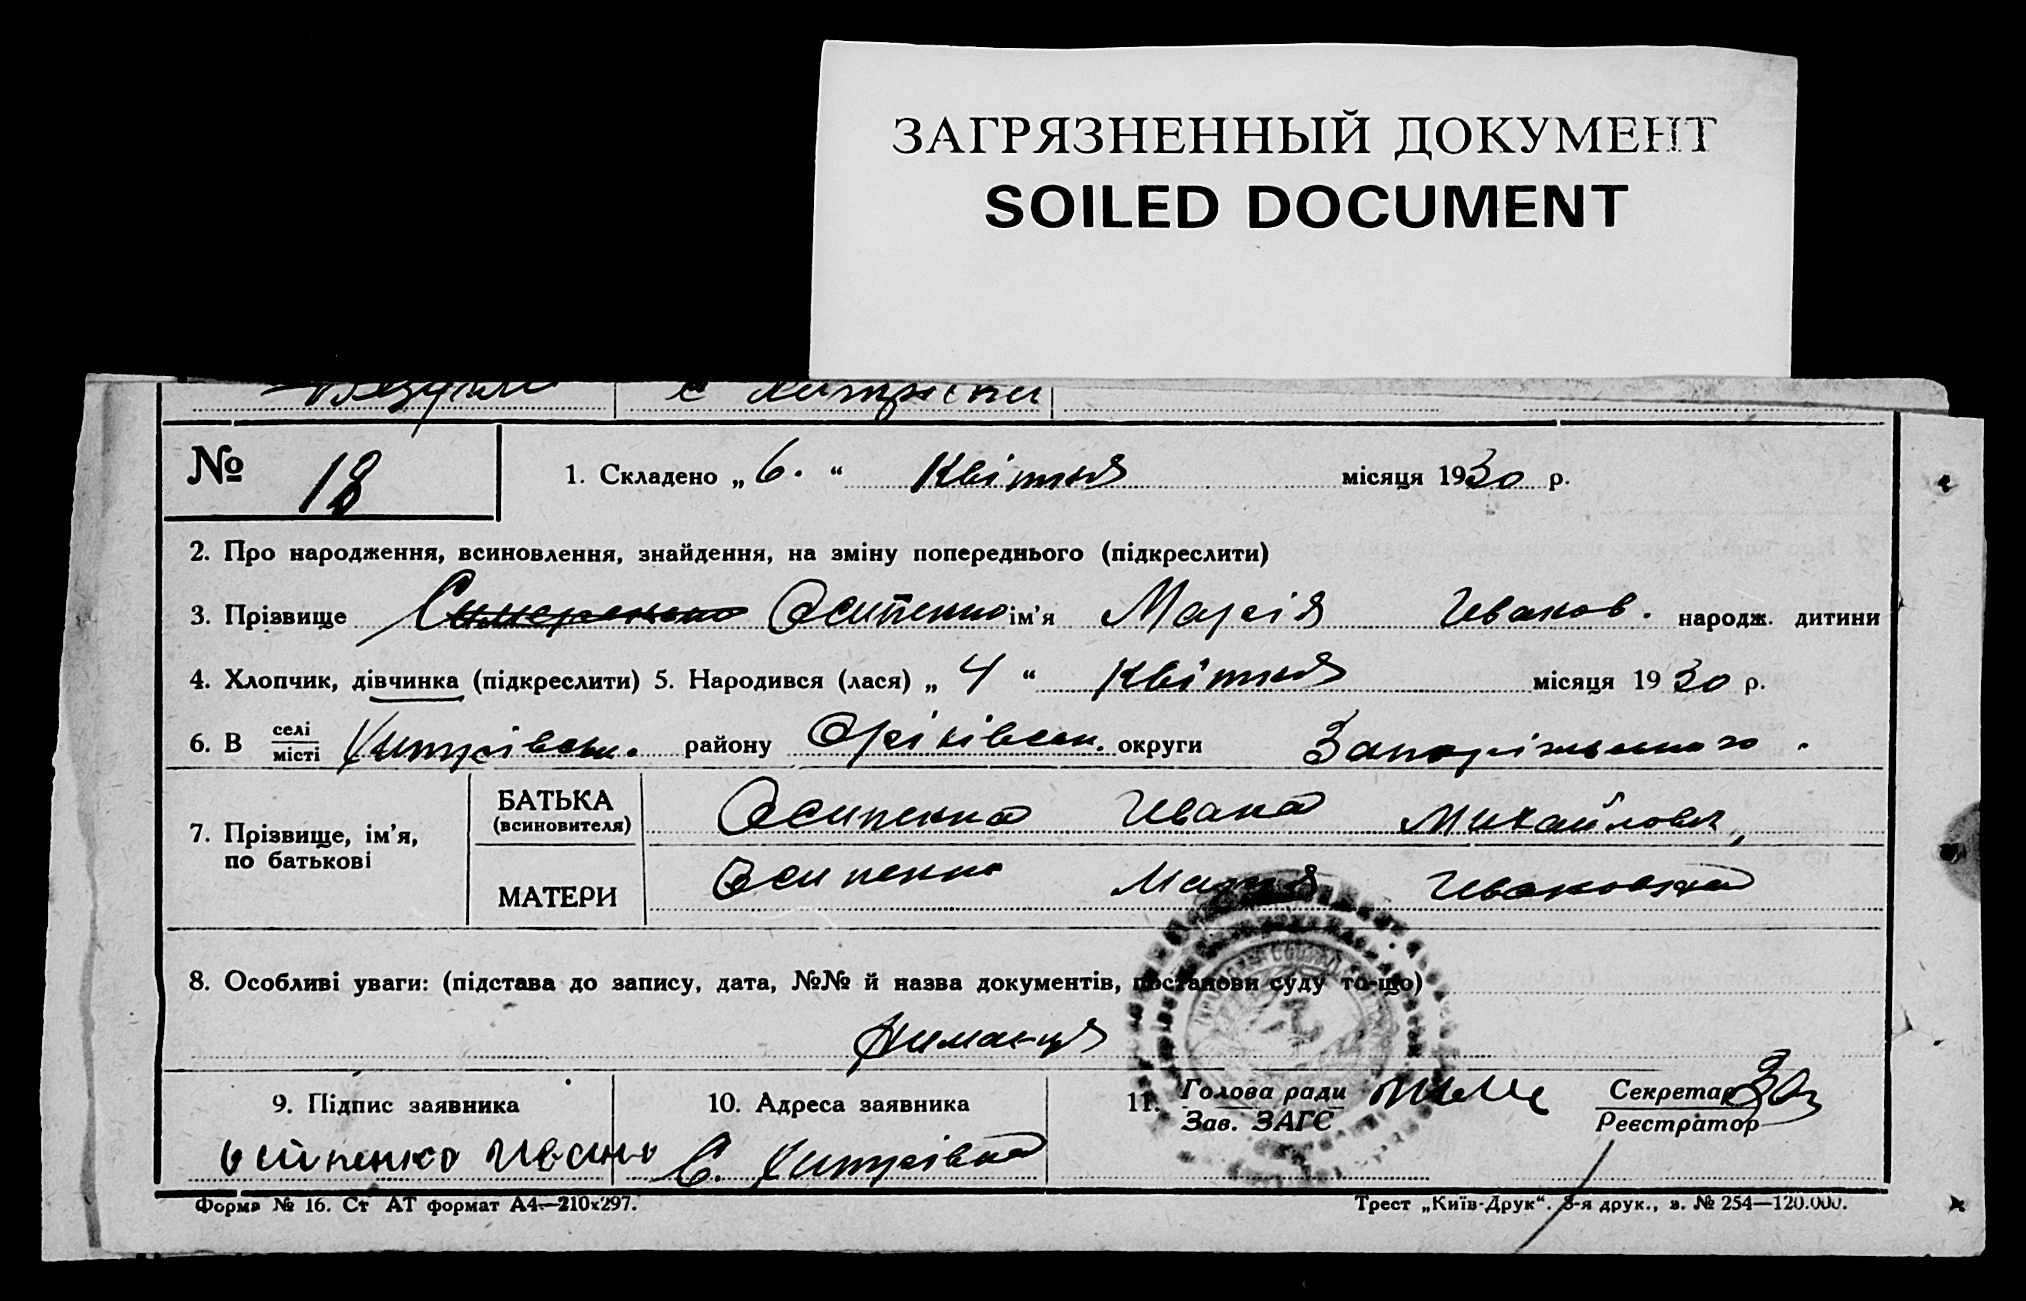 ЗАГРЯЗНЕННЫЙ ДОКУМЕНТ
SOILED DOCUMENT
№ 18
1. Складено „ 6. “ Квітня місяця 1930 р.
2. Про народження, всиновлення, знайдення, на зміну попереднього (підкреслити)
3. Прізвище Осипенко ім’я Марія Иванов. народж. дитини
4. Хлопчик, дівчинка (підкреслити) 5. Народився (лася) „ 4 “ Квітня місяця 1930 р.
6. В селі
місті району Оріхівськ. округи
7. Прізвище, ім’я,
по батькові
БАТЬКА
(всиновителя)
Осипенко Ивана Михайлович
МАТЕРИ
Осипенко Мария Ивановна
8. Особливі уваги: (підстава до запису, дата, №№ й назва документів, постанови суду то-що)
9. Підпис заявника
10. Адреса заявника
11. Голова ради
Зав. ЗАГС
Секретар
Реєстратор
Осипенко Иван
С.
Форма № 16. Ст АТ формат А4—210х297.
Трест „Київ-Друк“. 3-я друк., з. № 254—120.000.